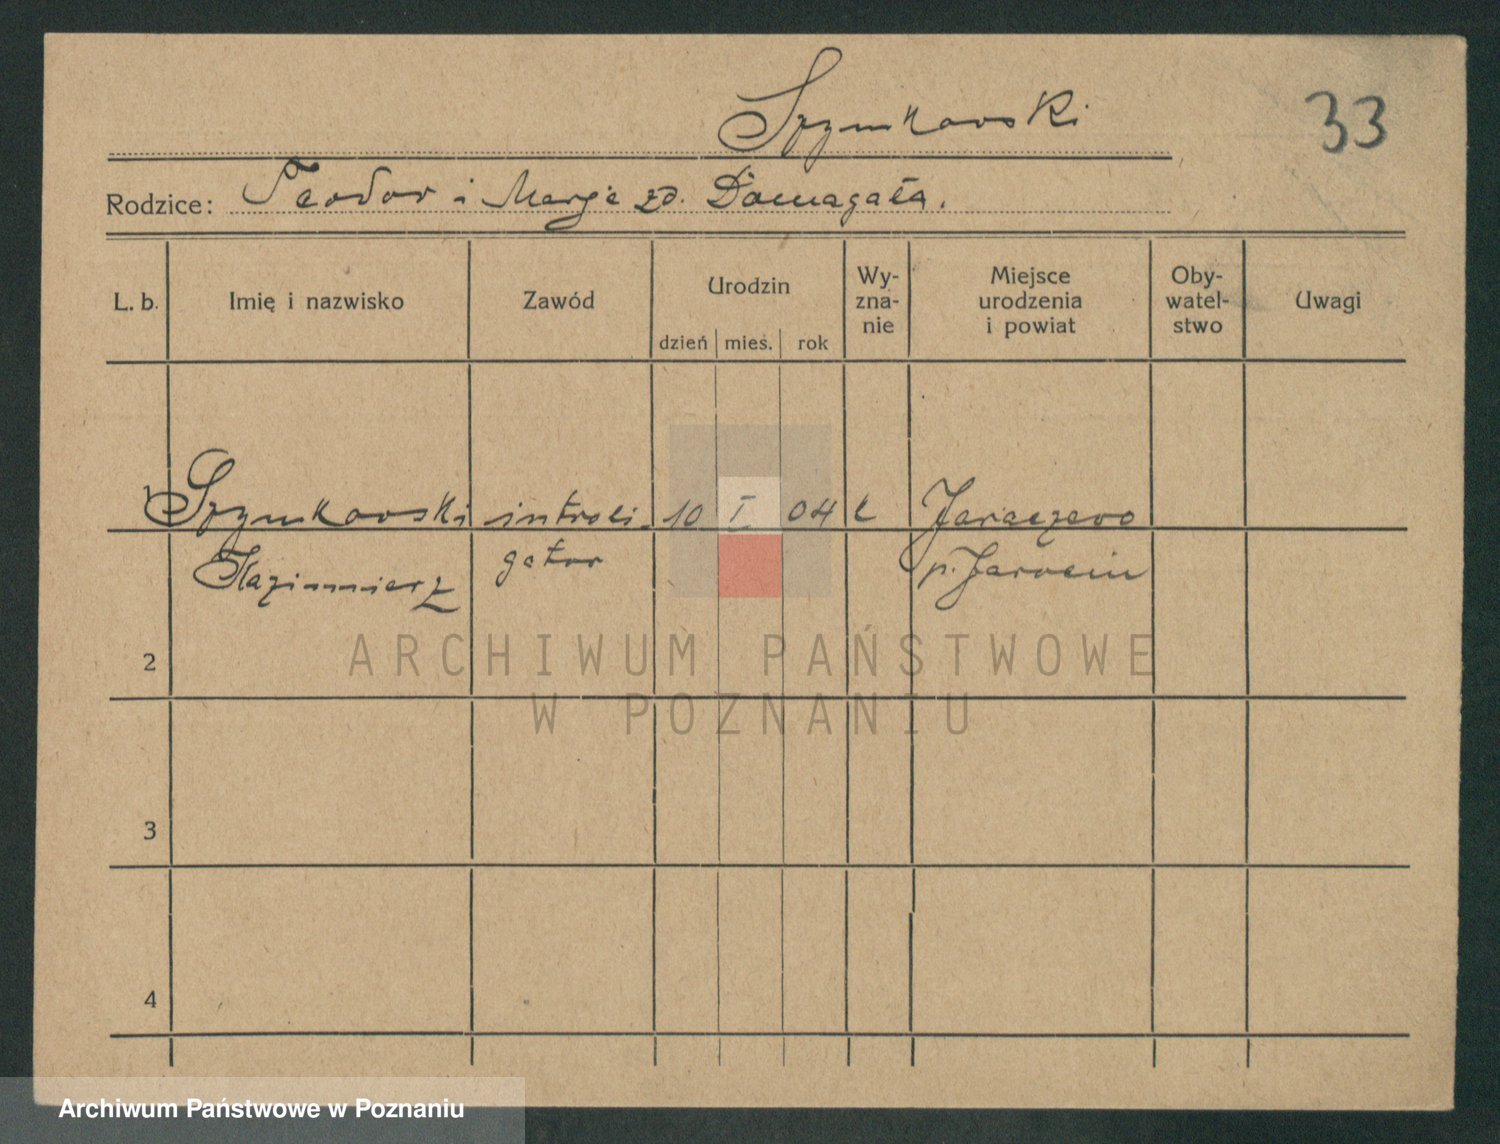 Szymkowski
33
Rodzice: Teodor i Marja zd. Domagała.
L. b. Imię i nazwisko Zawód Urodzin dzień mieś. rok Wy-zna-nie Miejsce urodzenia i powiat Oby-watel-stwo Uwagi
1 Szymkowski introli- 10 I 04 k Jaraczewo
Kazimierz gator p. Jarocin
2
3
4
ARCHIWUM PAŃSTWOWE
W POZNANIU
Archiwum Państwowe w Poznaniu